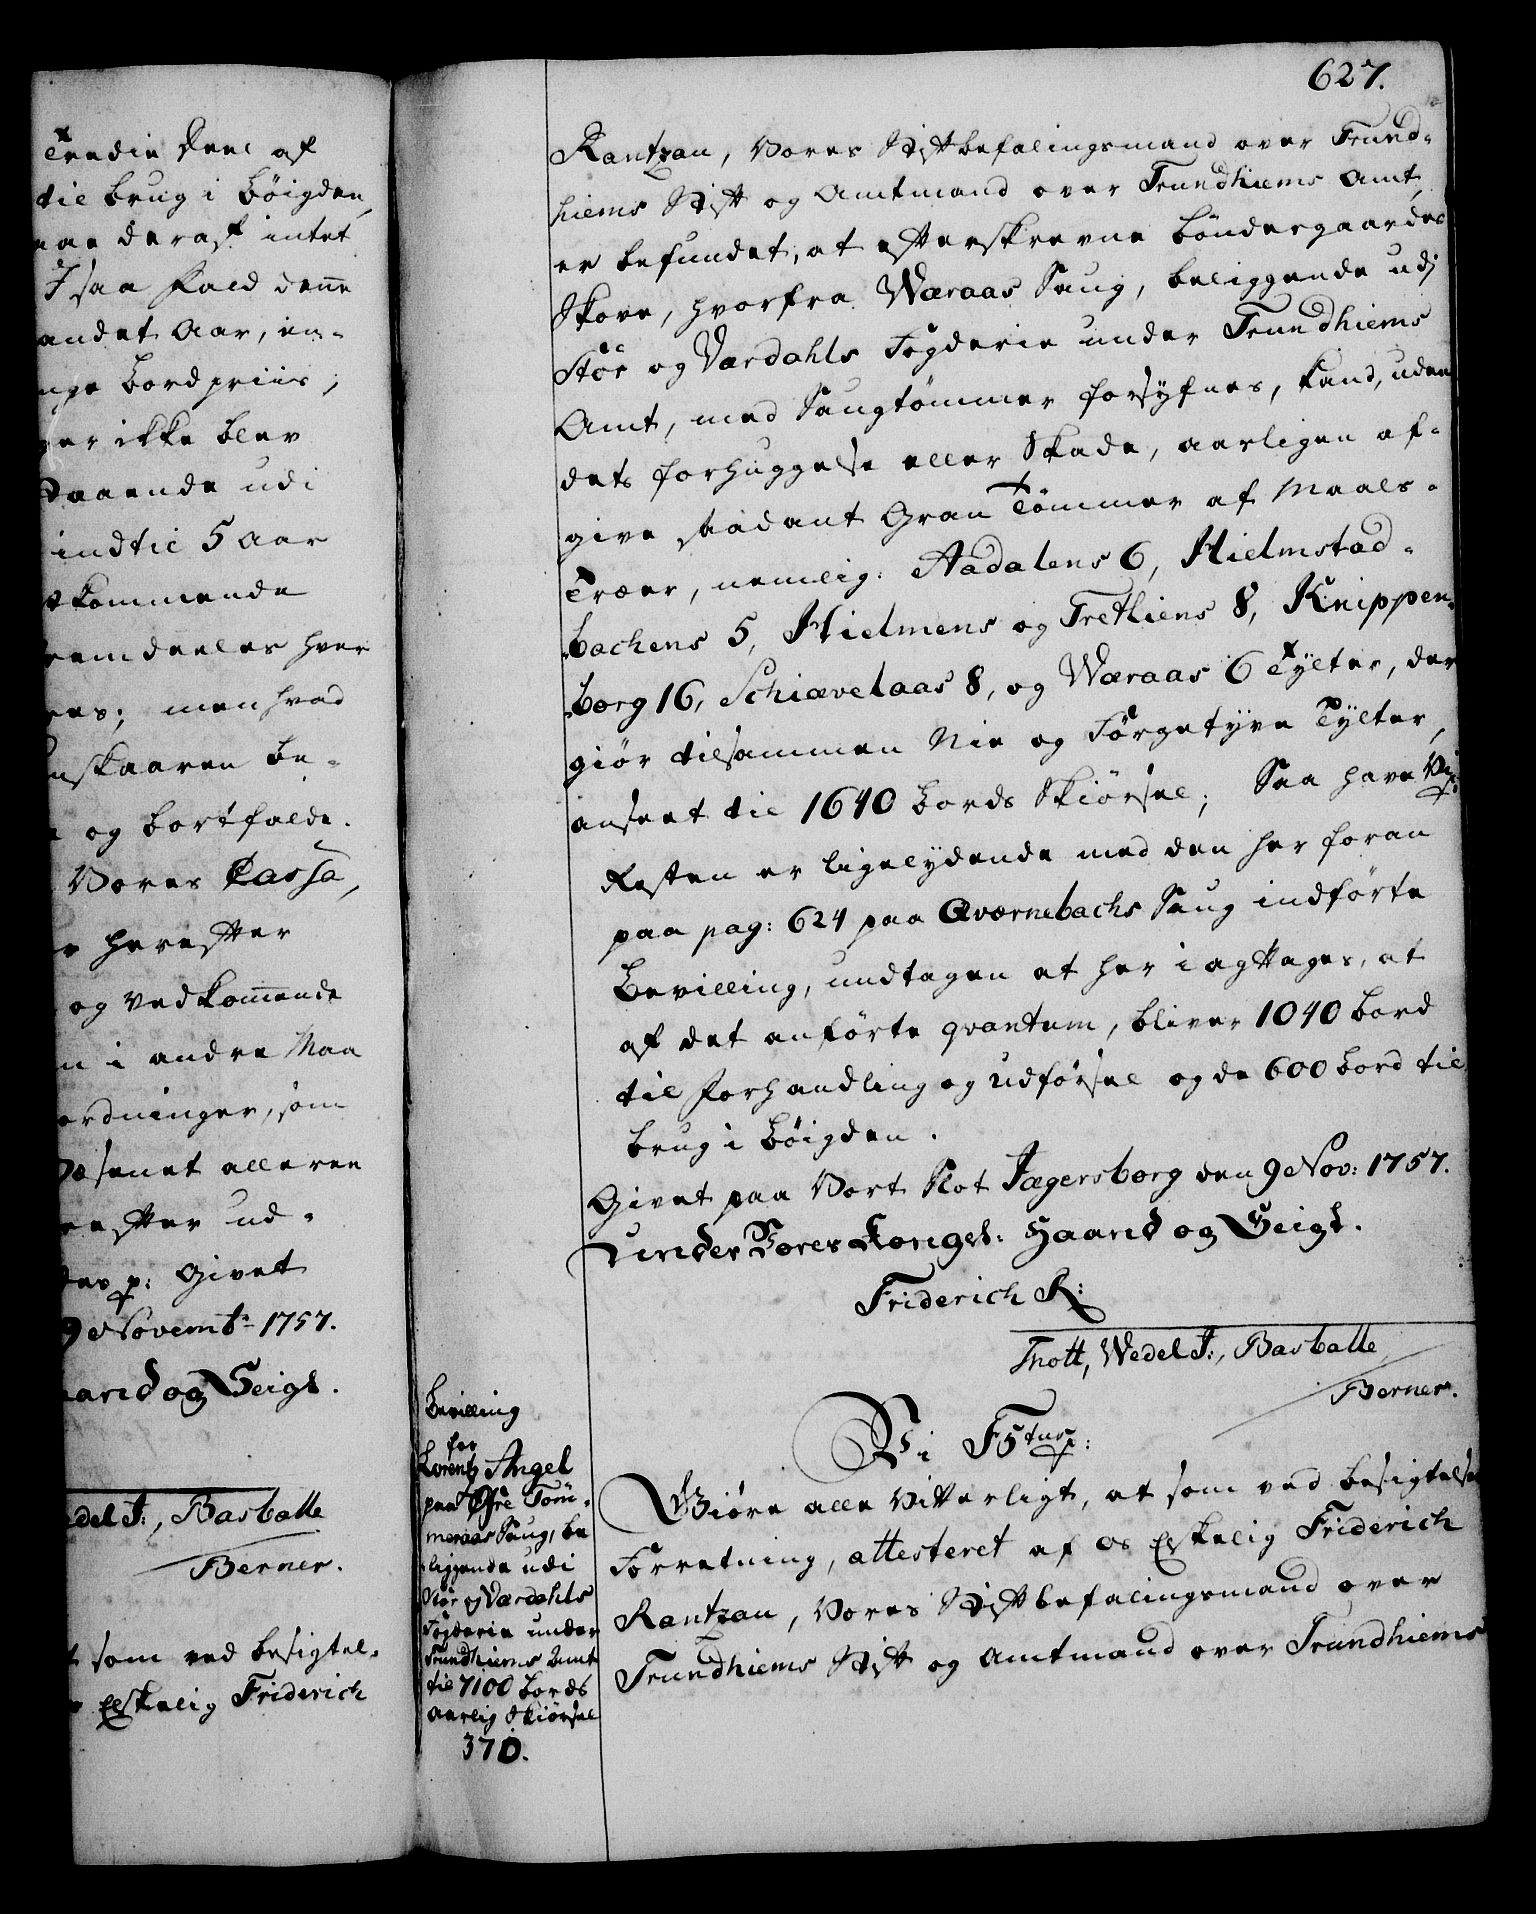 Tredie Deel af
til brug i Böigden,
maae deraf intet
I saa Fald denne
andet Aar, in-
Bordpriis;
ikke blev
staaende udi
indtil 5 Aar
kommende
fremdeeles hver
men hvad
be-
og bortfalde.
Vores Cassa,
herefter
og Vedkom̄ende
i andre Maa
ordninger, som
Væsenet allerede
herefter ud-
p: Givet
9 Novembr 1757.
Haand og Seigl.
Wedel J:, Barballe
Berner.
som ved besigtel-
Elskelig Friderich
627.
Rantzau, Vores Stiftbefalingsmand over Trund-
hiems Stift og Amtmand over Trundhiems Amt,
er befundet, at efterskrevne Böndergaardes
Skove, hvorfra Wæraas Saug, beliggende udj
Stör og Værdahls Fogderie under Trundhiems
Amt, med Saugtömmer forsyfnes, kand, uden
dets forhuggelse eller Skade, aarligen af-
give saadant Gran Tömmer af Maals-
Træer, nemlig: Aadalens 6, Hielmstad-
bachens 5, Hielmens og Trethiens 8, Knippen-
borg 16, Schiævelaas 8, og Wæraas 6 Tylter, der
giör tilsammen Nie og Förgetyve Tylter,
anseet til 1640 Bords Skiörsel; Saa have Vi p:
Resten er ligelydende med den her foran
paa pag: 624 paa Qværnebachs Saug indförte
Bevilling, undtagen at her iagttages, at
af det anförte qvantum, bliver 1040 Bord
til Forhandling og Udförsel og de 600 Bord til
brug i Böigden.
Givet paa Vort Slot Jægersborg den 9 Nov: 1757.
Under Vores Kongel: Haand og Seigl.
Friderich R:
Thott, Wedel J:, Barballe
Berner.
Bevilling
for
Lorentz Angel
paa Öfre Tom̄-
meraas Saug, be
liggende udi
Stör og Værdahls
Fogderie under
Trundhiems Amt
til 7100 Bords
aarlig Skiörsel
370.
Vi F5tus p:
Giöre alle Vitterligt, at som ved besigtelses
Forretning, attesteret af os Elskelig Friderich
Rantzau, Vores Stiftbefalingsmand over
Trundhiems Stift og Amtmand over Trundhiems